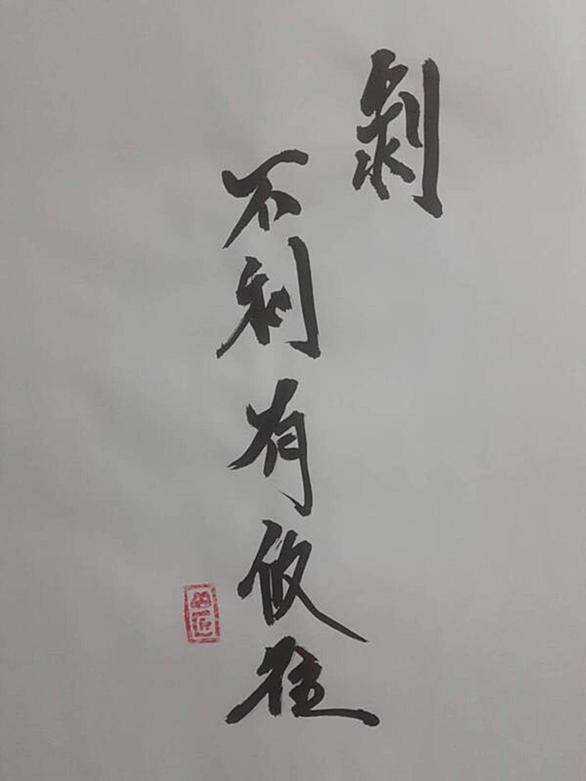 剥
不利有攸往